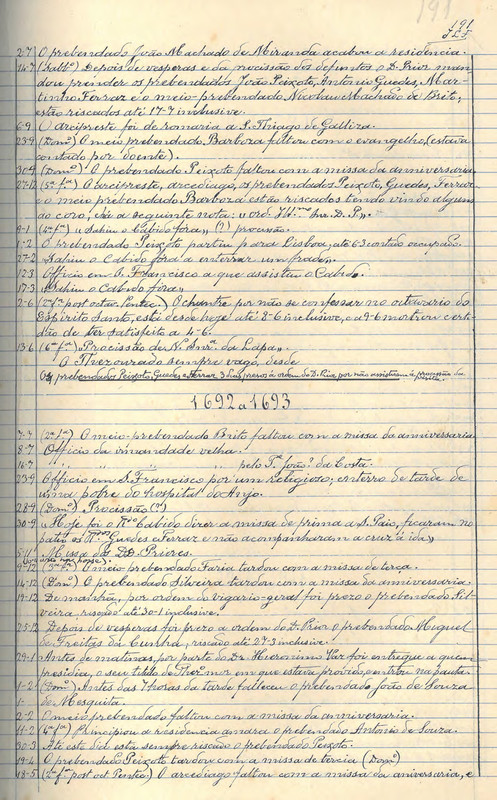 191
2-7 O prebendado João Machado de Miranda acabou a residencia.
14-7 (Sabb.º) Depois de vesperas e da procissão dos defuntos o D. Prior man-
dou prender os prebendados João Peixoto, Antonio Guedes, Mar-
tinho Ferraz e o meio prebendado Nicolau Machado de Brito;
estão riscados até 17-7 inclusive.
6-9 O arcipreste foi de romaria a S. Thiago de Galliza.
23-9 (Dom.º) O meio prebendado Barboza faltou com o evangelho, (estava
contado por doente).
30-9 (Dom.º) O prebendado Peixoto faltou com a missa da anniversaria.
27-12 (5.ª f.ª) O arcipreste, arcediago, os prebendados Peixoto, Guedes, Ferraz
e o meio prebendado Barboza estão riscados tendo vindo alguns
ao coro, e a seguinte nota: "ord. Ill.mo Snr. D. P.".
9-1 (4.ª f.ª) "Sahiu o Cabido fora" (?) procissão.
1-2 O prebendado Peixoto partiu para Lisboa, até 6-3 contado occupado.
27-2 "Sahiu o Cabido fora a enterrar um frade".
12-3 Officio em S. Francisco a que assistiu o Cabido.
17-3 "Sahiu o Cabido fora"
2-6 (2.ª f.ª post octav. Pentec.) O chantre por não se confessar no outavario do
Espirito Santo, está desde hoje até 8-6 inclusive, e a 9-6 mostrou certi-
dão de ter satisfeito a 4-6.
13-6 (6.ª f.ª) "Procissão de N. Snr.ª da Lapa".
O Thezourado sempre vago, desde
Os prebendados Peixoto, Guedes e Ferraz 3 dias presos á ordem do D. Prior por não assistirem á procissão da
1692 a 1693
7-7 (2.ª f.ª) O meio prebendado Brito faltou com a missa da anniversaria
8-7 Officio da irmandade velha.
16-7 " " " pelo P. João da Costa.
23-9 Officio em S. Francisco por um religioso; enterro de tarde de
uma pobre do hospital do Anjo.
28-9 (Dom.º) Procissão (?)
30-9 "Hoje foi o R.do Cabido dizer a missa de prima a S. Paio, ficaram no
patio os R.dos Guedes e Ferraz e não acompanharam a cruz á ida"
5-11 Missa dos DD. Priores.
9-12 (3.ª f.ª) O meio prebendado Faria tardou com a missa de terça.
14-12 (Dom.º) O prebendado Silveira tardou com a missa da anniversaria.
19-12 De manhã, por ordem do vigario-geral foi prezo o prebendado Sil-
veira, riscado até 30-1 inclusive.
25-12 Depois de vesperas foi prezo a ordem do D. Prior o prebendado Miguel
de Freitas da Cunha, riscado até 27-3 inclusive.
29-1 Antes de matinas, por parte do Dr. Hieronimo Vaz foi entregue a quem
presidia, o seu titulo de Thez.mor em que estava provido, entrou na pauta.
1-2 (Dom.º) Antes das Horas da tarde falleceu o prebendado João de Souza
de Mesquita.
2-2 O meio prebendado faltou com a missa da anniversaria.
11-2 (4.ª f.ª) Principiou a residencia amara o prebendado Antonio de Souza.
30-3 Até este dia está sempre riscado o prebendado Peixoto.
19-4 O prebendado Peixoto tardou com a missa de tercia (Dom.º)
18-5 (2.ª f.ª post oct Pentec.) O arcediago faltou com a missa da aniversaria, e